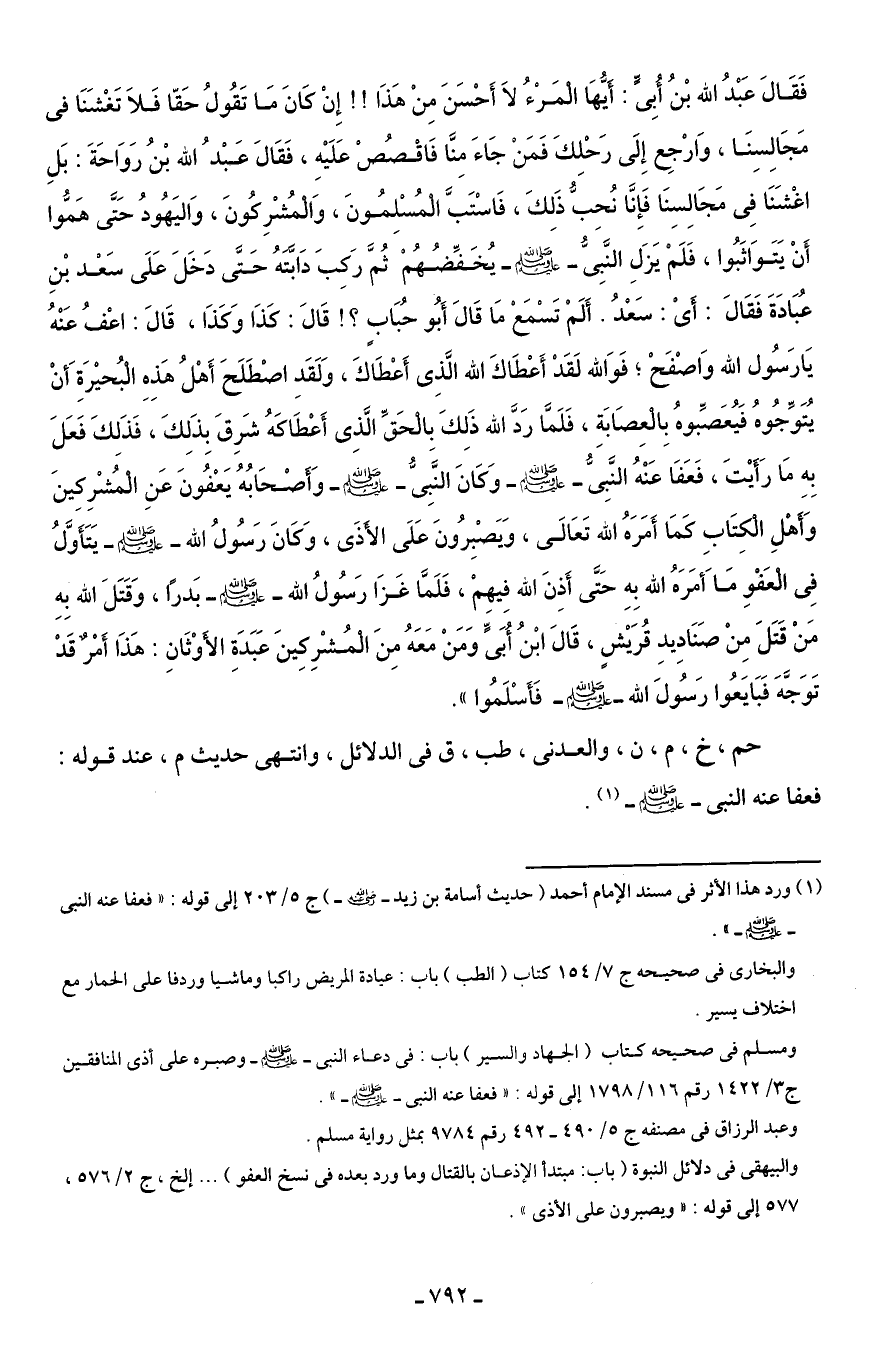 فَقَالَ عَبْدُ الله بْنُ أُبِىٍّ : أَيُّهَا الْمَرْءُ لاَ أَحْسَنَ مِنْ هَذَا !! إِنْ كَانَ مَا تَقُولُ حَقّا فَلاَ تَغْشَنَا فى
مَجَالِسِنَا ، وَارْجِع إِلَى رَحْلِكَ فَمَنْ جَاءَ مِنَّا فَاقْصُصْ عَلَيْه ، فَقَالَ عَبْدُ الله بْنُ رَوَاحَةَ : بَلِ
اغْشَنَا فِى مَجَالِسِنَا فَإِنَّا نُحِبُّ ذَلِكَ ، فَاسْتَبَّ الْمُسْلِمُونَ ، وَالْمُشْرِكُونَ ، وَاليَهُودُ حَتَّى هَمُّوا
أَنْ يَتَوَاثَبُوا ، فَلَمْ يَزَلِ النَّبِىُّ ـ ﷺ ـ يُخَفِّضُهُمْ ثُمَّ رَكِبَ دَابَّتَهُ حَتَّى دَخَلَ عَلَى سَعْدِ بْنِ
عُبَادَةَ فَقَالَ : أَىْ : سَعْدُ . أَلَمْ تَسْمَعْ مَا قَالَ أَبُو حُبَابٍ ؟! قَالَ : كَذَا وَكَذَا ، قَالَ : اعْفُ عَنْهُ
يَارَسُول الله وَاصْفَحْ ؛ فَوَالله لَقَدْ أَعْطَاكَ الله الَّذِى أَعْطَاكَ ، وَلَقَد اصْطَلَحَ أَهْلُ هَذِهِ الْبُحيْرَةِ أَنْ
يُتَوِّجُوهُ فَيُعَصِّبُوهُ بِالْعِصَابَةِ ، فَلَمَّا رَدَّ الله ذَلِكَ بِالْحَقِّ الَّذِى أَعْطَاكَهُ شَرِقَ بِذَلِكَ ، فَذَلِكَ فَعَلَ
بِهِ مَا رَأَيْتَ ، فَعَفَا عَنْهُ النَّبِىُّ ـ ﷺ ـ وَكَانَ النَّبِىُّ ـ ﷺ ـ وَأَصْحَابُهُ يَعْفُونَ عَنِ الْمُشْرِكِينَ
وَأَهْلِ الْكِتَابِ كَمَا أَمَرَهُ الله تَعَالَى ، وَيَصْبِرُونَ عَلَى الأَذَى ، وَكَانَ رَسُولُ الله ـ ﷺ ـ يَتَأَوَّلُ
فِى الْعَفْوِ مَا أَمَرَهُ الله بِهِ حَتَّى أَذِنَ الله فِيهِمْ ، فَلَمَّا غَزَا رَسُولُ الله ـ ﷺ ـ بَدرًا ، وَقَتَلَ الله بِهِ
مَنْ قَتَلَ مِنْ صَنَادِيدِ قُرَيْشٍ ، قَالَ ابْنُ أُبَىٍّ وَمَنْ مَعَهُ مِنَ الْمُشْرِكِينَ عَبَدَةِ الأَوْثَانِ : هَذَا أَمْرٌ قَدْ
تَوَجَّهَ فَبَايَعُوا رَسُولَ الله ـ ﷺ ـ فَأَسْلَمُوا » .
حم ، خ ، م ، ن ، والعدنى ، طب ، ق فى الدلائل ، وانتهى حديث م ، عند قوله :
فعفا عنه النبى ـ ﷺ ـ (١) .
(١) ورد هذا الأثر فى مسند الإمام أحمد ( حديث أسامة بن زيد ـ رضي الله عنه ـ ) ج ٥/ ٢٠٣ إلى قوله : « فعفا عنه النبى
ـ ﷺ ـ » .
والبخارى فى صحيحه ج ٧/ ١٥٤ كتاب ( الطب ) باب : عيادة المريض راكبا وماشيا وردفا على الحمار مع
اختلاف يسير .
ومسلم فى صحيحه كتاب ( الجهاد والسير ) باب : فى دعاء النبى ـ ﷺ ـ وصبره على أذى المنافقين
ج٣/ ١٤٢٢ رقم ١١٦/ ١٧٩٨ إلى قوله : « فعفا عنه النبى ـ ﷺ ـ » .
وعبد الرزاق فى مصنفه ج ٥/ ٤٩٠ ـ ٤٩٢ رقم ٩٧٨٤ بمثل رواية مسلم .
والبيهقى فى دلائل النبوة ( باب: مبتدأ الإذعان بالقتال وما ورد بعده فى نسخ العفو ) ... إلخ ، ج ٢/ ٥٧٦ ،
٥٧٧ إلى قوله : « ويصبرون على الأذى » .
ـ ٧٩٢ ـ